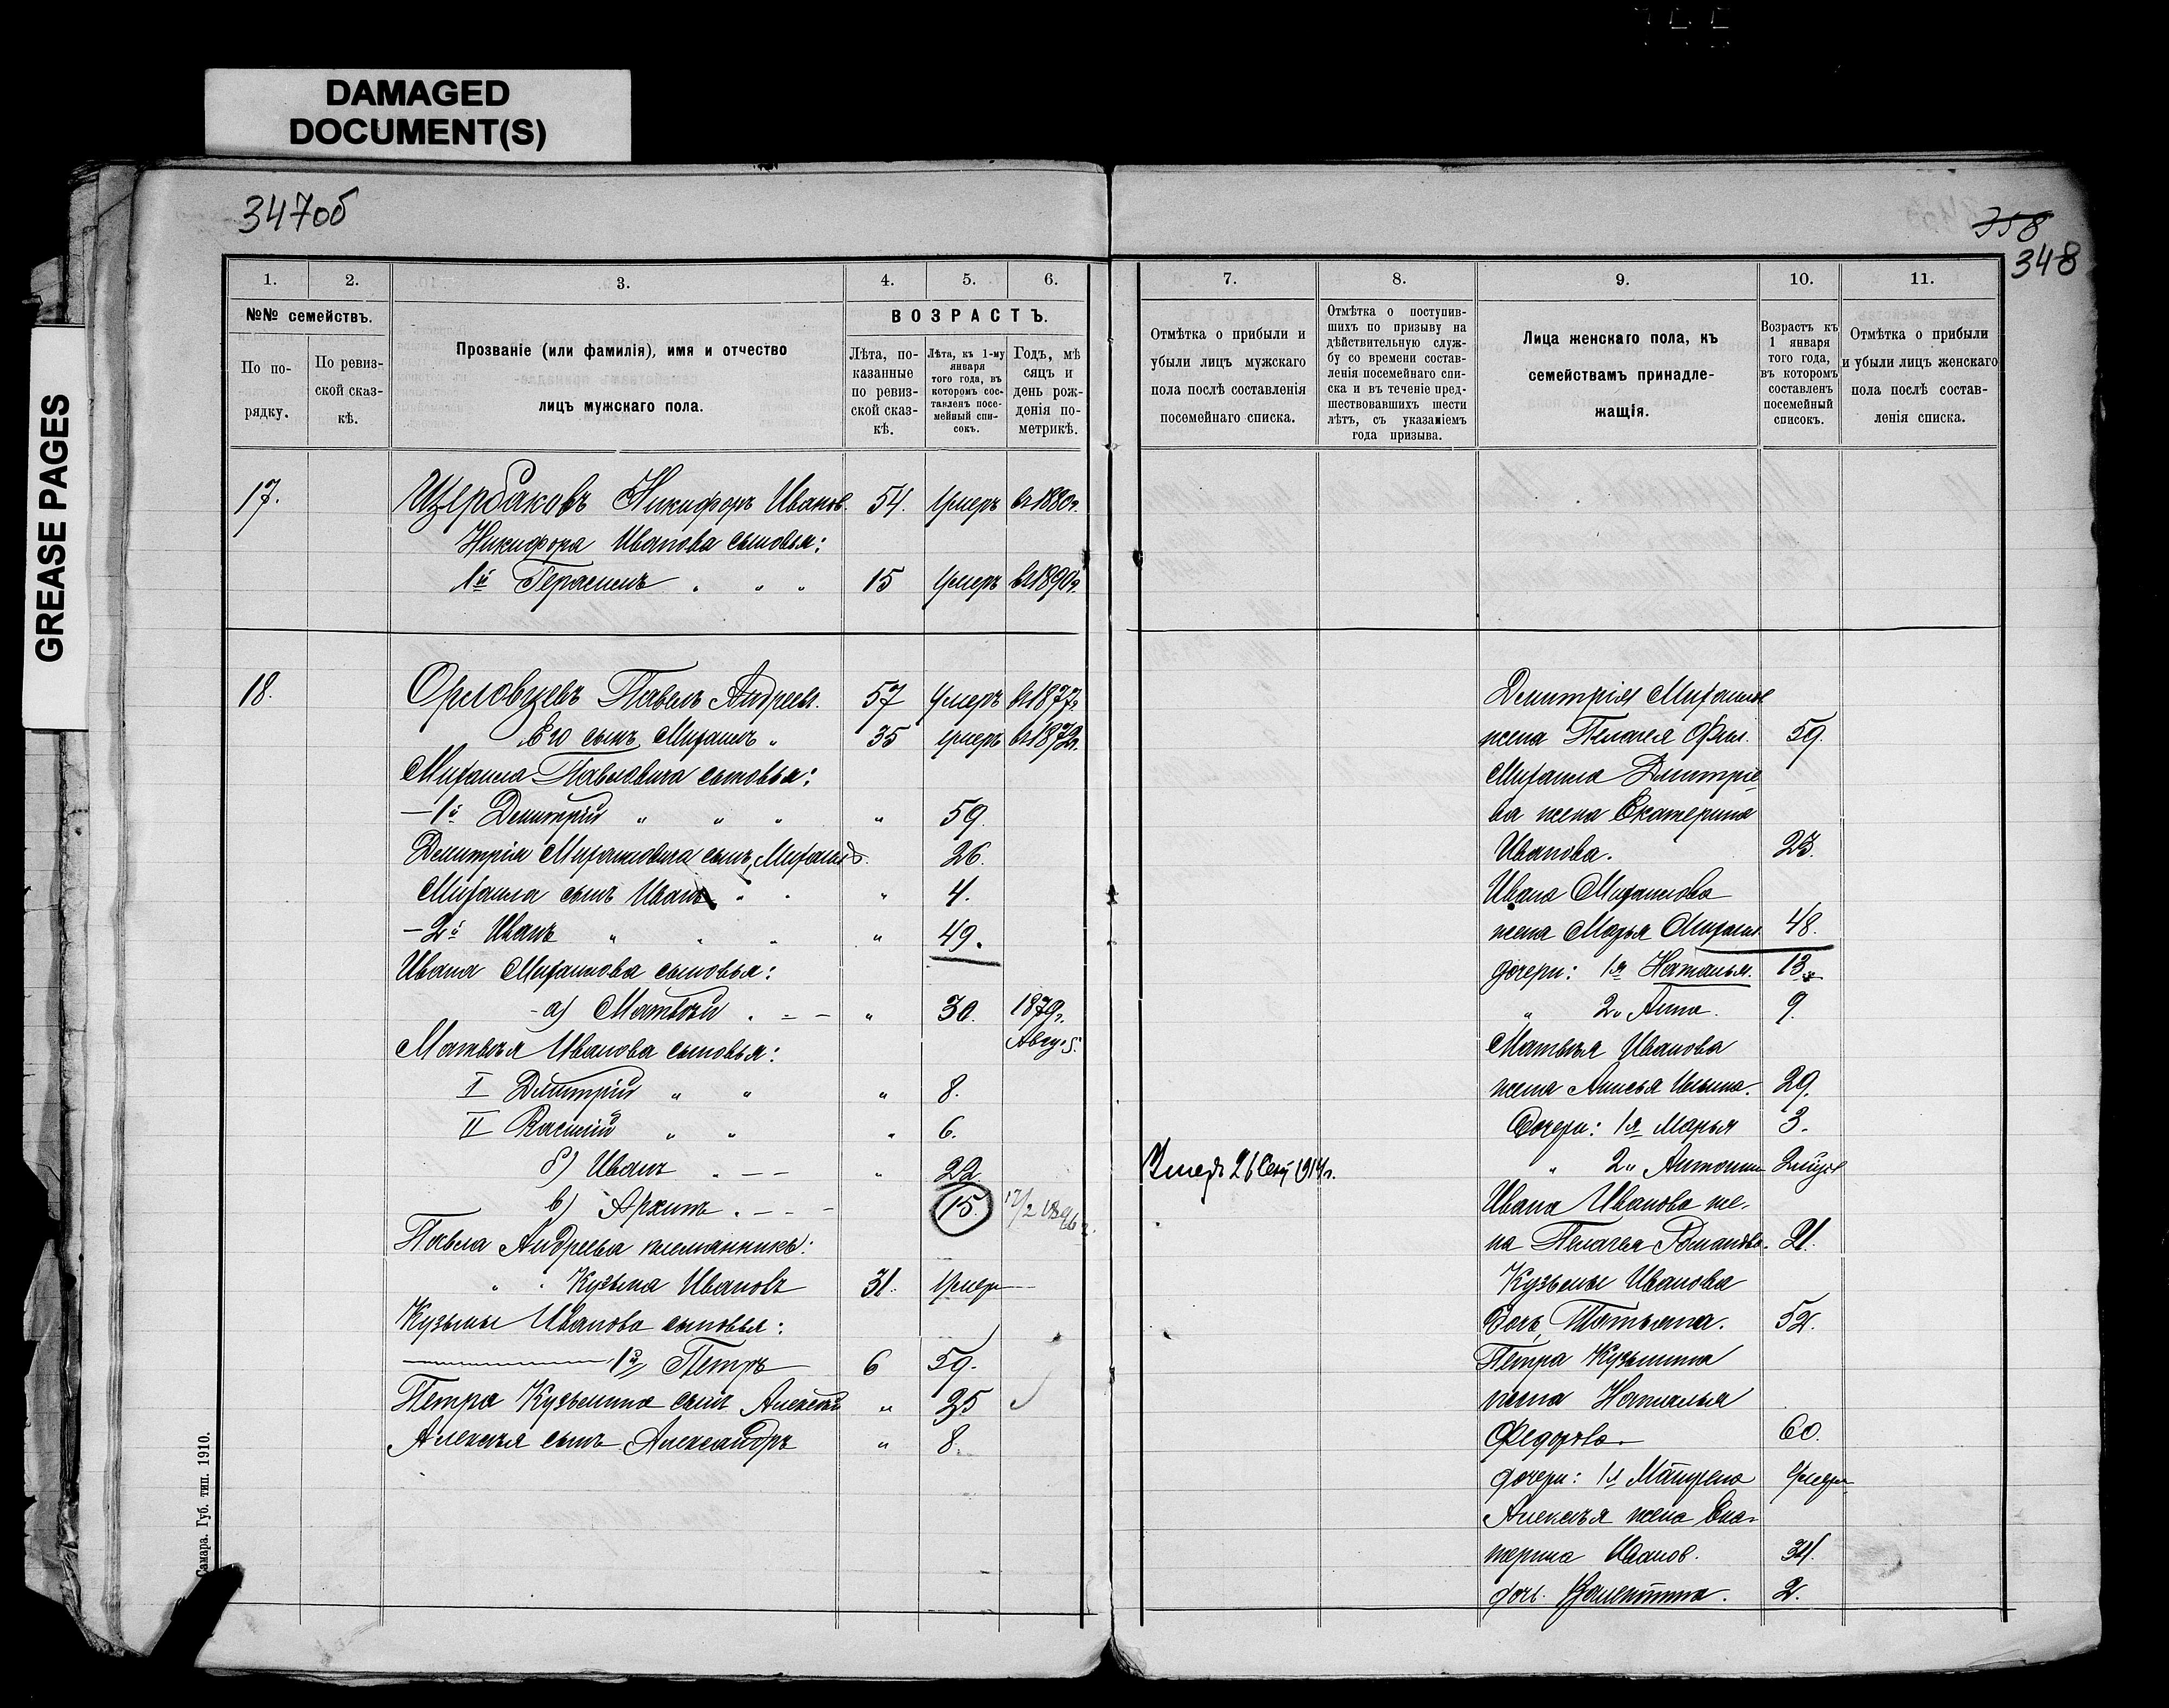 DAMAGED
DOCUMENT(S)
GREASE PAGES
347об
358
348
1.
2.
3.
4.
5.
6.
№№ семействъ.
По по-
рядку.
По ревиз-
ской сказ-
кѣ.
Прозваніе (или фамилія), имя и отчество
лицъ мужскаго пола.
ВОЗРАСТЪ.
Лѣта, по-
казанные
по ревиз-
ской сказ-
кѣ.
Лѣта, къ 1-му
января
того года, въ
которомъ сос-
тавленъ посе-
мейный спи-
сокъ.
Годъ, мѣ
сяцъ и
день рож-
денія по-
метрикѣ.
17. Щербаковъ Никифоръ Иванов. 54. Умеръ въ 1880г.
Никифора Иванова сыновья:
1й Герасимъ " " " 15 Умеръ въ 1890г.
18. Орловцевъ Павелъ Андреев. 57 Умеръ въ 1877г.
Его сынъ Михаилъ " 35 умеръ въ 1872г.
Михаила Павловича сыновья:
—1й Демитрій " " " " 59.
Демитрія Михаиловича сынъ, Михаилъ. 26.
Михаила сынъ Иванъ " " " 4.
—2й Иванъ " " " " 49.
Ивана Михаилова сыновья:
а) Матвѣй . — — " 30. 1879г.
Авгу. 5.
Матвѣя Иванова сыновья:
I Дмитрій " " " 8.
II Василій " " " 6.
б) Иванъ . — — " 22.
в) Архипъ . — — — 15. 17/2 1896г.
Павла Андреева племянникъ:
" " Кузьма Ивановъ 31. Умеръ
Кузьмы Иванова сыновья:
1й Петръ 6 59.
Петра Кузьмина сынъ Алексѣй " 35
Алексѣя сынъ Александръ " 8.
Самара. Губ. тип. 1910.
7.
8.
9.
10.
11.
Отмѣтка о прибыли и
убыли лицъ мужскаго
пола послѣ составленія
посемейнаго списка.
Отмѣтка о поступив-
шихъ по призыву на
дѣйствительную служ-
бу со времени состав-
ленія посемейнаго спи-
ска и въ теченіе пред-
шествовавшихъ шести
лѣтъ, съ указаніемъ
года призыва.
Лица женскаго пола, къ
семействамъ принадле-
жащія.
Возрастъ къ
1 января
того года,
въ которомъ
составленъ
посемейный
списокъ.
Отмѣтка о прибыли
и убыли лицъ женскаго
пола послѣ состав-
ленія списка.
Демитрія Михаилов.
жена Пелагея 59.
Михаила Дмитріе
ва жена Екатерина
Иванова. 23.
Ивана Михаилова
жена Марья Михаил. 48.
дочери: 1я Наталья. 13.
" 2" Анна. 9.
Матвѣя Иванова
жена Анисья Ильина. 29.
Дочери: 1я Марья 3.
Умеръ 26 Сент 1914г. " 2"
Ивана Иванова же-
на Пелагея Романова. 21.
Кузьмы Иванова
дочь Татьяна. 52.
Петра Кузьмина
жена Наталья
Федорова 60.
дочери: 1я умерл
Алексѣя жена Ека-
терина Иванов. 34.
дочь Валентина. 2.